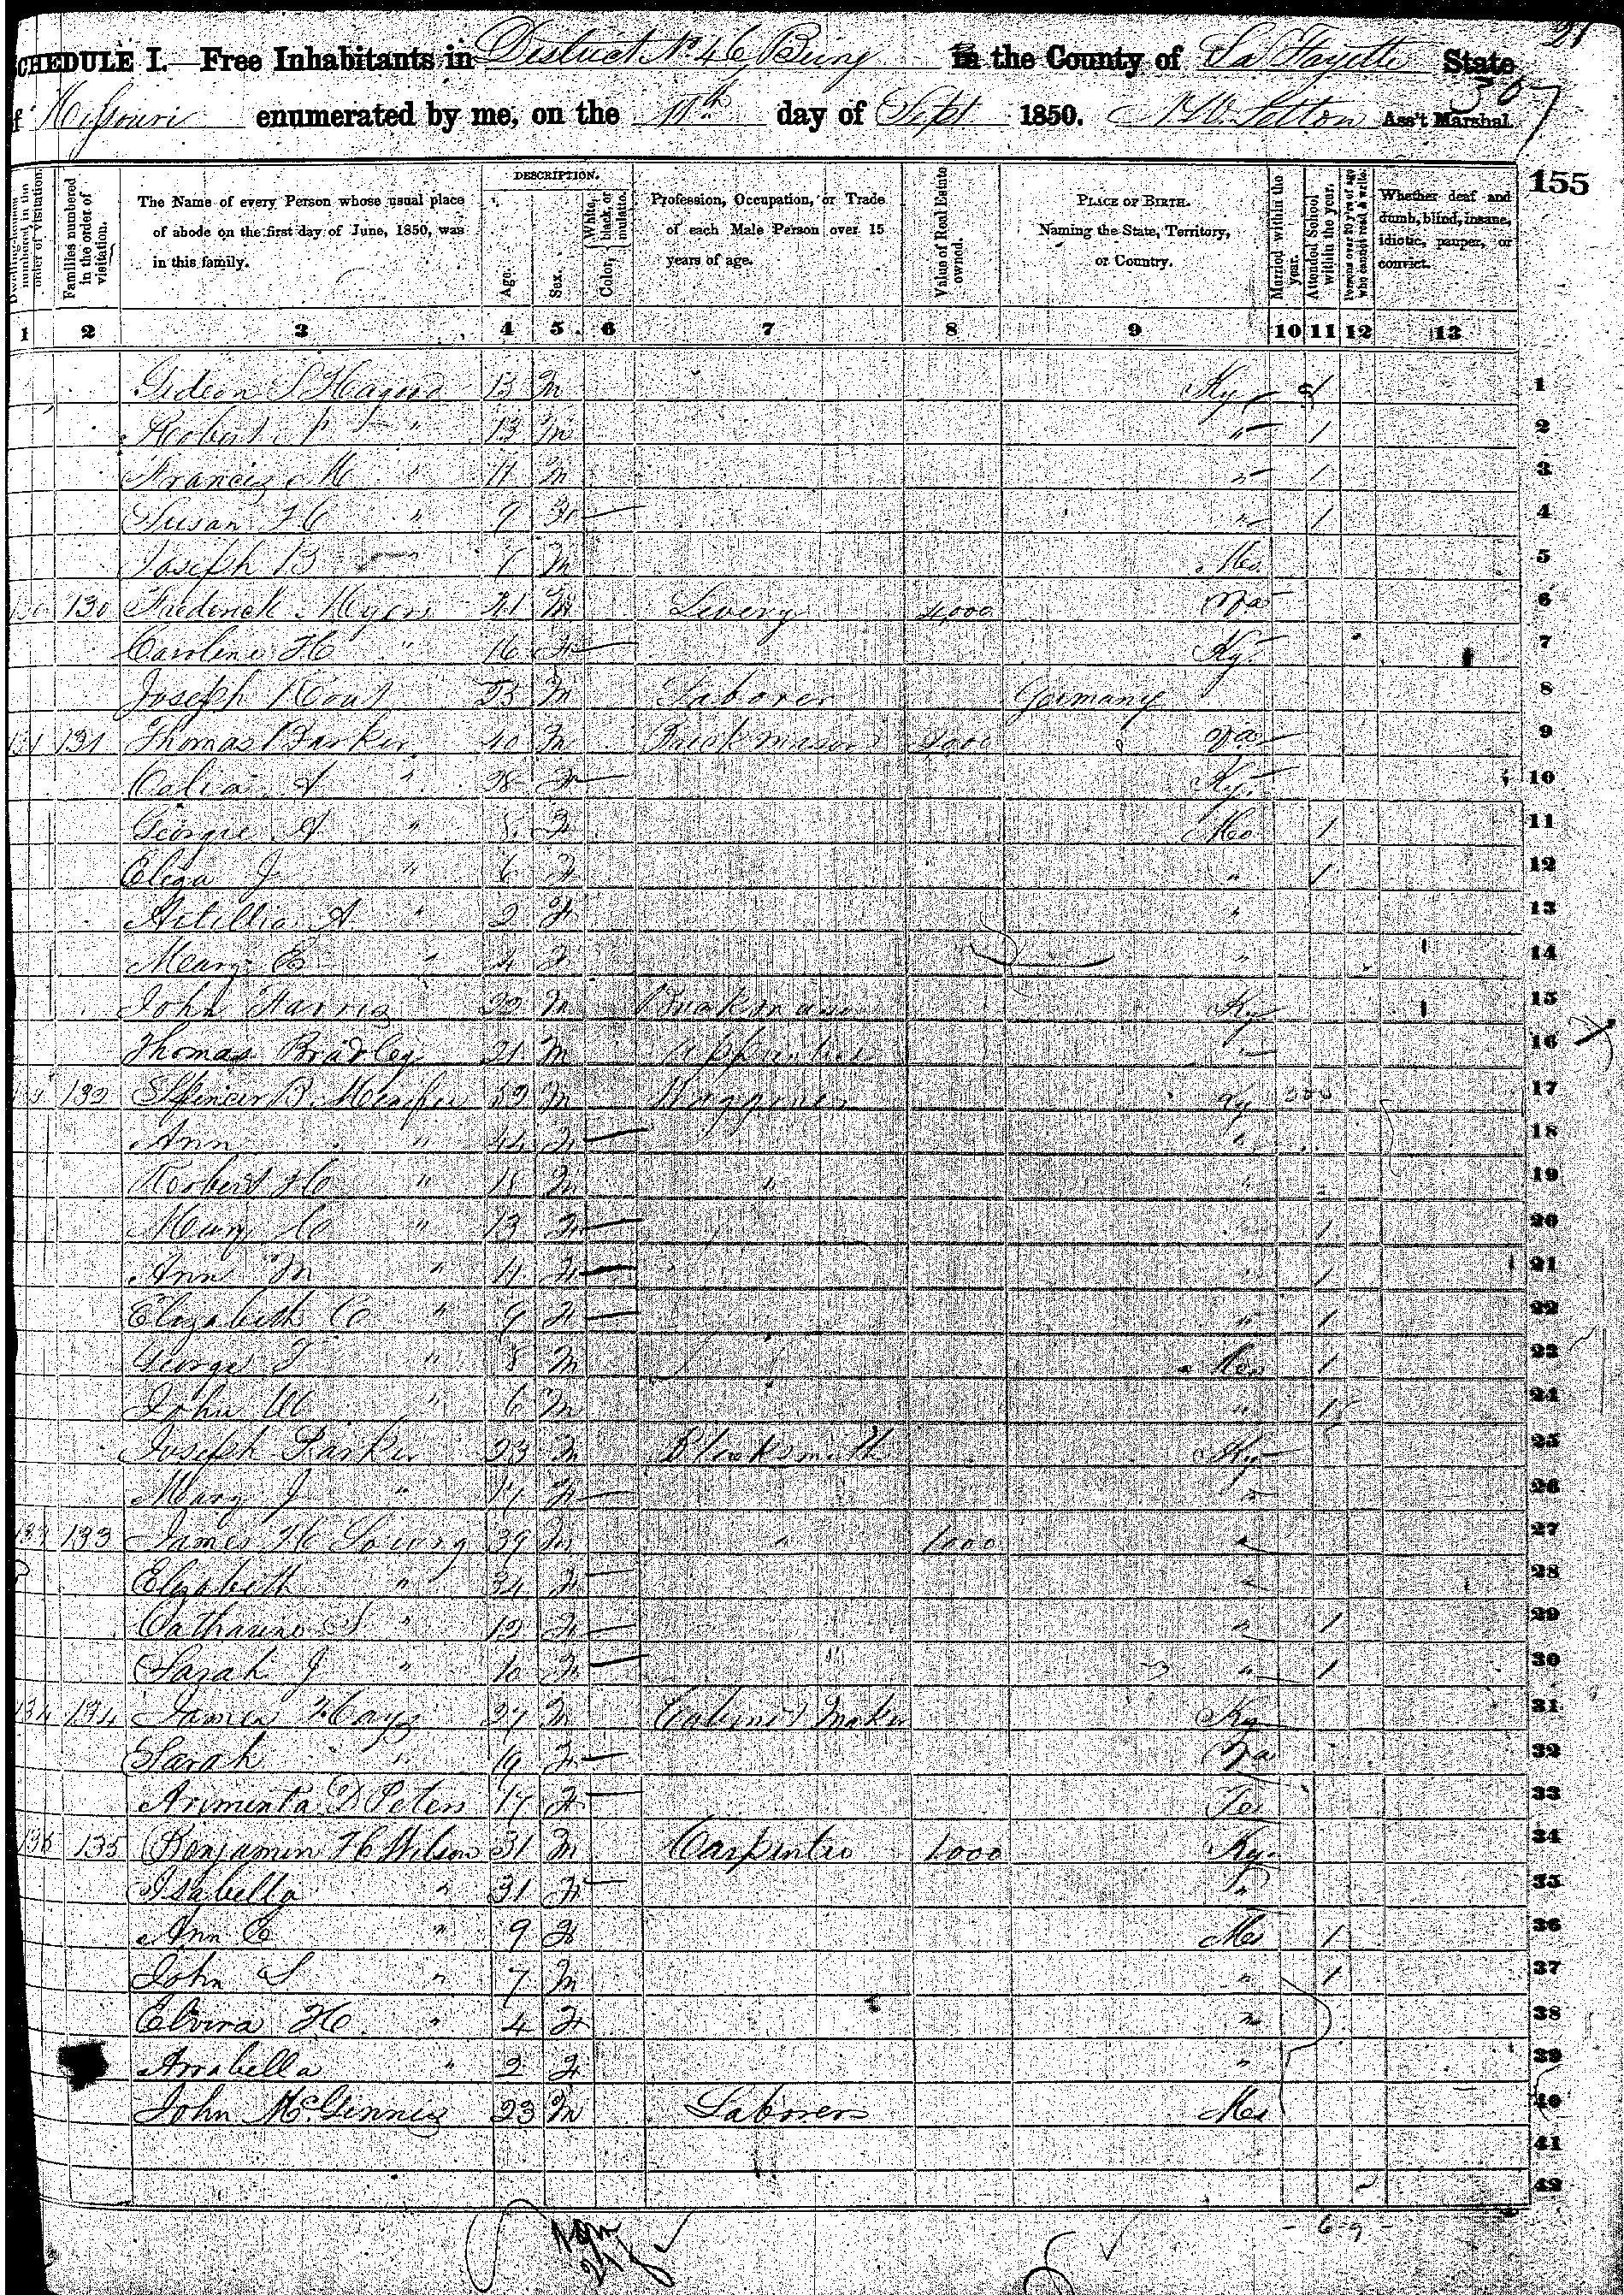 21
SCHEDULE I.—Free Inhabitants in District No 46 Being in the County of La Fayette State
367
of Missouri enumerated by me, on the 11th day of Sept 1850. Ass't Marshal.
155
DESCRIPTION.
Dwelling-houses numbered in the order of visitation.
Families numbered in the order of visitation.
The Name of every Person whose usual place of abode on the first day of June, 1850, was in this family.
Age.
Sex.
Color, White, black, or mulatto.
Profession, Occupation, or Trade of each Male Person over 15 years of age.
Value of Real Estate owned.
PLACE OF BIRTH. Naming the State, Territory, or Country.
Married within the year.
Attended School within the year.
Persons over 20 y'rs of age who cannot read & write.
Whether deaf and dumb, blind, insane, idiotic, pauper, or convict.
1 2 3 4 5 6 7 8 9 10 11 12 13
Gideon S 13 M Ky 1 1
Robert " 13 M " 1 2
Francis M " 11 M " 1 3
Susan H " 9 F " 1 4
Joseph B 7 M Mo 5
130 Frederick Myers 21 M Livery 4,000 Va 6
Caroline H " 16 F Ky 7
Joseph M Laborer Germany 8
131 131 Thomas Barker 40 M Brickmason Va 9
Celia A " 28 F Ky 10
Georgie A " 8 F Mo 1 11
Eliza J " 6 F " 1 12
A. " 2 F " 13
Meary E " 4 F " 14
John Harris 22 M Brickmason Ky 15
Thomas Bradley 21 M " 16
132 Spincer B. M Ky 17
Ann " 44 F " 18
Robert H " 18 M " " 19
Mary C " 13 F 1 20
Ann M " 11 F " 1 21
Elizabeth C " 9 F " 1 22
George T " 8 M Mo 1 23
John W " 6 M " 1 24
Joseph Parker 23 M Blacksmith Ky 25
Mary J " 17 F " 26
133 133 James H Lowry 39 M " 1000 " 27
Elizabeth " 34 F " 28
Catharine S " 12 F " 1 29
Sarah J " 10 F " 1 30
134 134 James Hays 27 M Cabinet Maker Ky 31
Sarah " 19 F Va 32
Arimenta D Peters 17 F Te 33
135 135 Benjamin H Wilson 31 M Carpenter 1000 Ky 34
Isabella " 31 F " 35
Ann E " 9 F Mo 1 36
John S " 7 M " 1 37
Elvira H " 4 F " 38
Arrabella " 2 F " 39
John McGinnis 23 M Laborer Mo 40
41
42
- 6-9 -